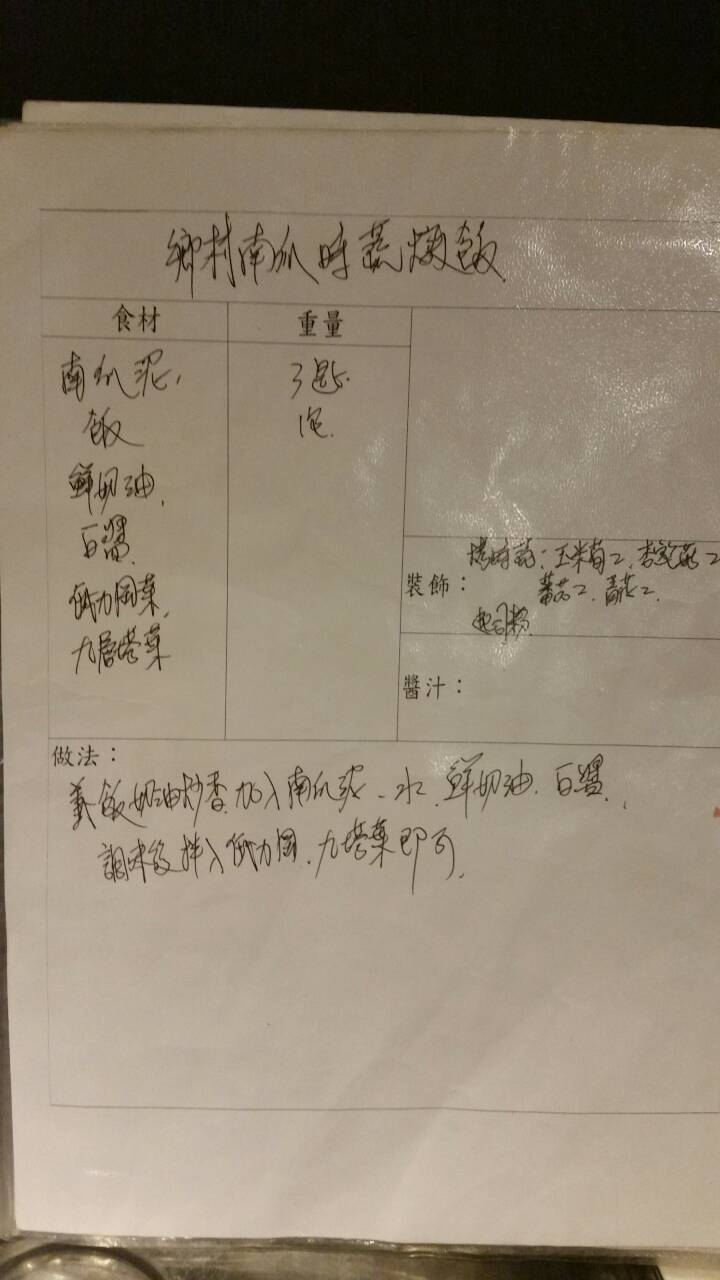 鄉村南瓜時蔬燉飯
食材 重量
南瓜泥, 3匙.
飯 1包.
鮮奶油,
白醬,
低力岡葉,
九層塔葉
裝飾： 烤時蔬：玉米筍2、杏鮑菇2
蕃茄2、青花2、
起司粉
醬汁：
做法：
義飯奶油炒香加入南瓜泥、水、鮮奶油、白醬、
調味後拌入低力岡、九塔葉即可.